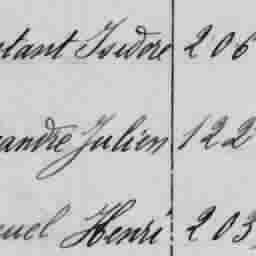 tant Isidore 206
andre Julien 122
uel Henri 203